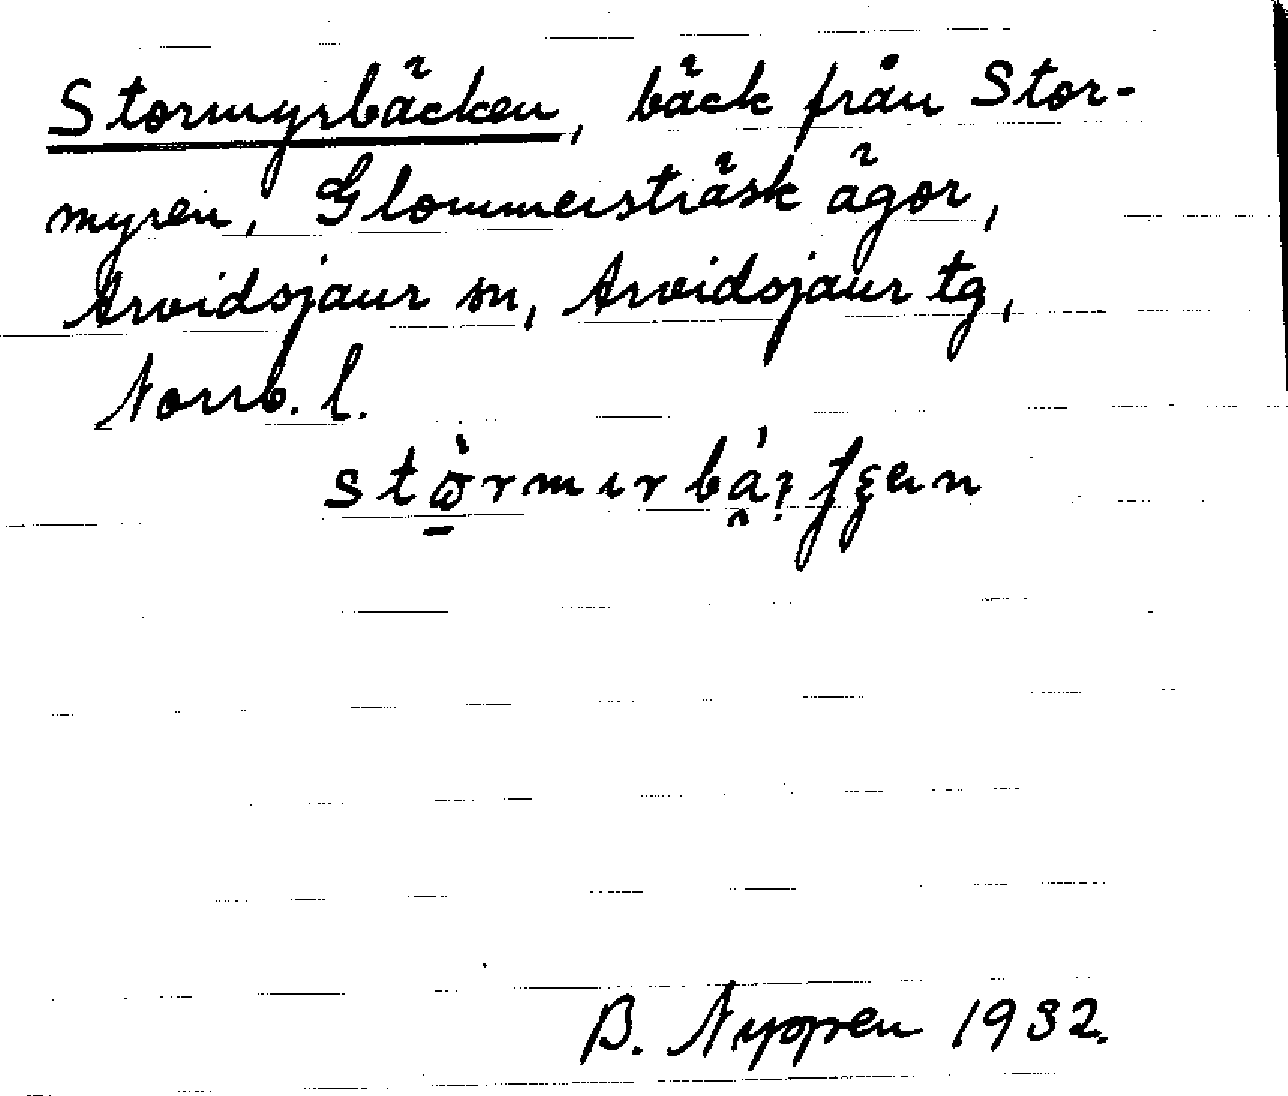 Stormyrbäcken, bäck från Stor-
myren, Glommersträsk ägor,
Arvidsjaur sn, Arvidsjaur tg,
Norrb. l.
B. Nyppen 1932.